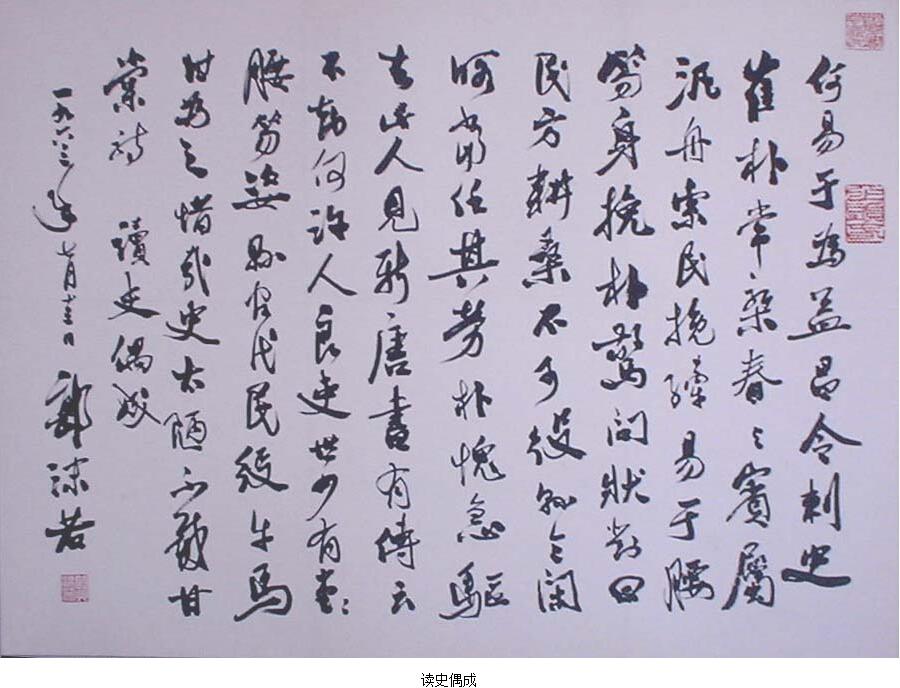 何易于為益昌令刺史
崔朴常乘春与賓屬
汎舟索民挽繂易于腰
笏身挽朴驚問狀對曰
民方耕桑不可役縣令閑
當任其勞朴愧急驅
去此人見新唐書有傳云
不知何許人良吏世少有堂〻
腰笏姿縣官代民役牛馬
為之惜哉史太陋不載甘
棠詩 讀史偶成
一九六三年七月十三日 郭沫若
读史偶成